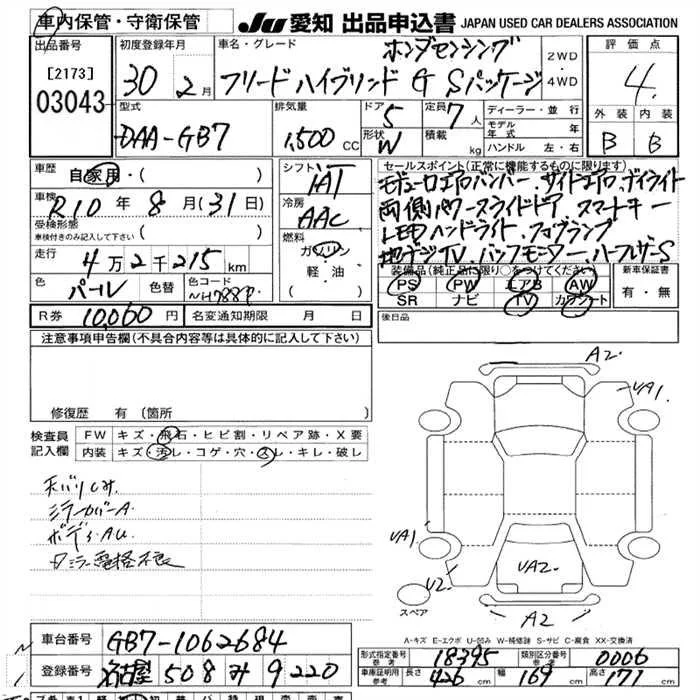 車内保管・守衛保管
JU 愛知 出品申込書 JAPAN USED CAR DEALERS ASSOCIATION
出品番号
[2173]
03043
初度登録年月
30 2月
車名・グレード
ホンダセンシング
フリード ハイブリッド G Sパッケージ
2WD
4WD
評価点
4.
外装 内装
B B
型式
DAA-GB7
排気量
1,500 CC
ドア
5
形状
W
定員
7人
積載
kg
ディーラー・並行
モデル年式
ハンドル 左・右
車歴
自家用・( )
車検
R10年8月(31日)
受検形態
車検付きのみ記入して下さい
( )
走行
4万2千215km
色
パール
色替
色コード
NH788P
シフト
IAT
冷房
AAC
燃料
ガソリン
軽・油
( )
セールスポイント(正常に機能するものに限ります)
モデューロエアロバンパー.サイドエアロ.デイライト
両側パワースライドドア スマートキー
LEDヘッドライト.フォグランプ
地デジTV.バックモニター.ハーフレザーS
装備品(純正品に限り○をつけてください)
PS PW エアB AW
SR ナビ TV カワシート
新車保証書
有・無
R券 10,060円
名変通知期限 月 日
後日品
注意事項申告欄(不具合内容等は具体的に記入して下さい)
修復歴 有 (箇所 )
検査員
記入欄
FW キズ・飛石・ヒビ割・リペア跡・X要
内装 キズ・汚レ・コゲ・穴・スレ・キレ・破レ
天バリしみ.
ミラーカバーA.
ボディAU.
ミラー電格不良
A2.
UA1.
UA1
U2.
UA2.
A2
スペア
A-キズ E-エクボ U-凹み W-補修跡 S-サビ C-腐食 XX-交換済
車台番号
GB7-1062684
登録番号
名古屋 508 み 9220
形式指定番号
参考
18395
類別区分番号
参考
0006
車庫証明用
参考
長さ 426 cm
幅 169 cm
高さ 171 cm